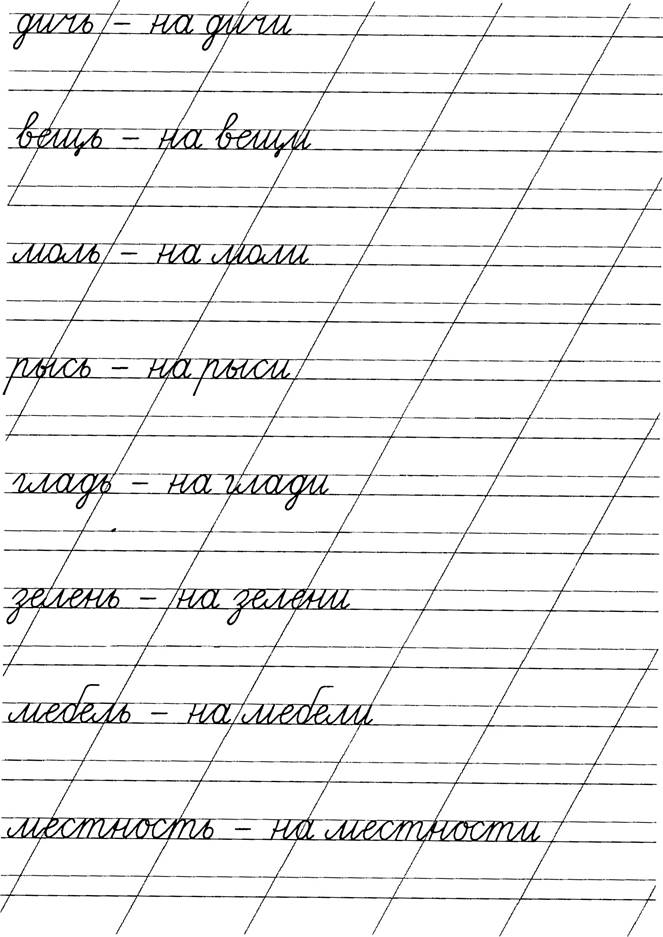 дичь – на дичи
вещь – на вещи
моль – на моли
рысь – на рыси
гладь – на глади
зелень – на зелени
мебель – на мебели
местность – на местности